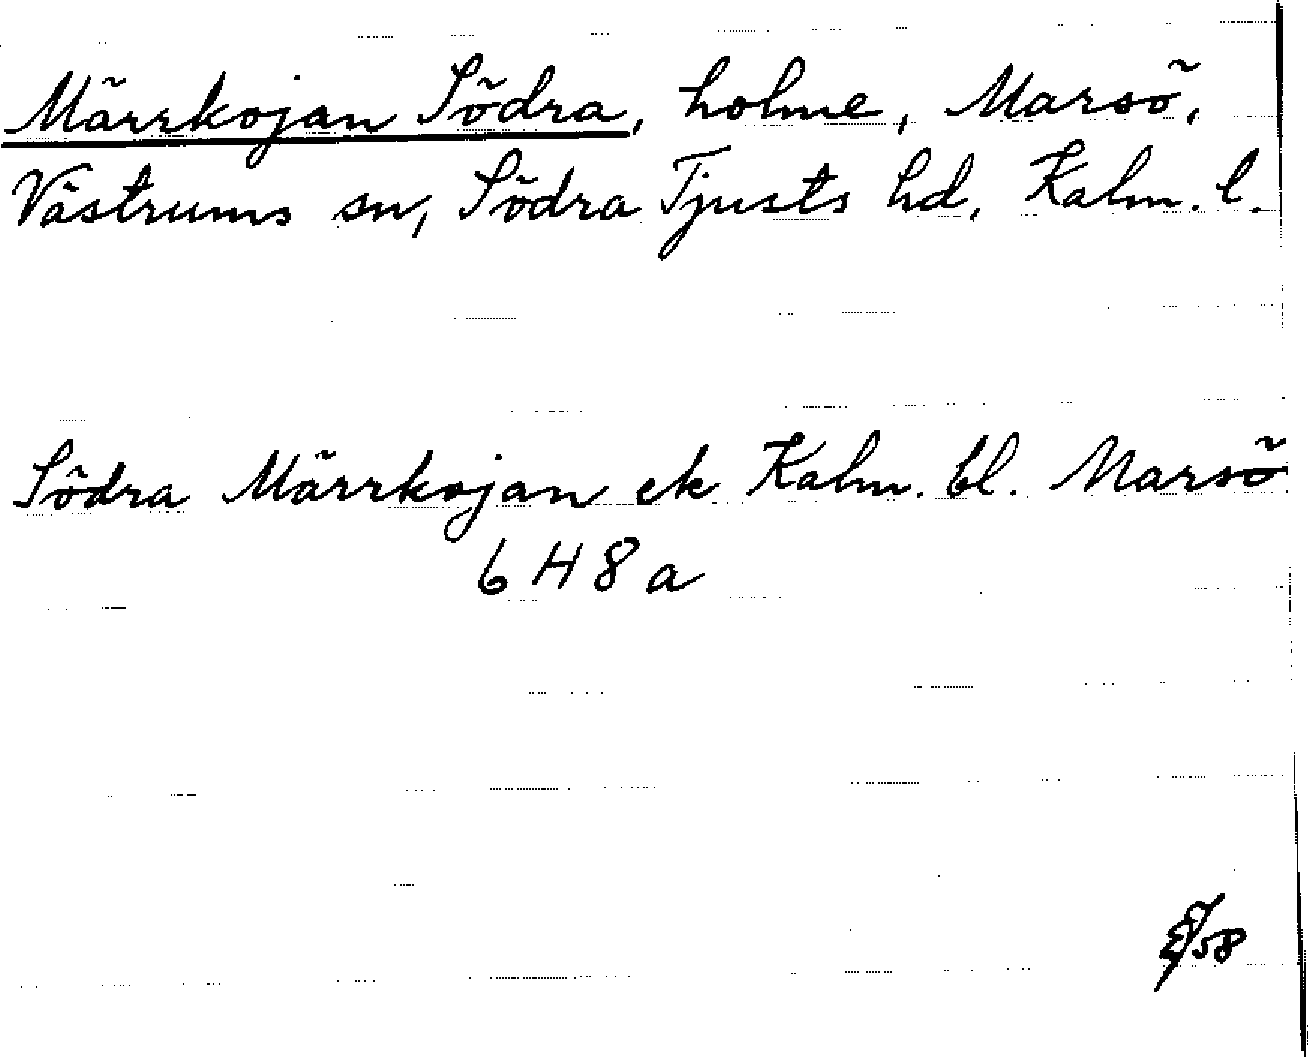 Märrkojan Södra, holme, Marsö,
Västrums sn, Södra Tjusts hd, Kalm. l.
Södra Märrkojan ek Kalm. bl. Marsö
6 H 8 a
/58